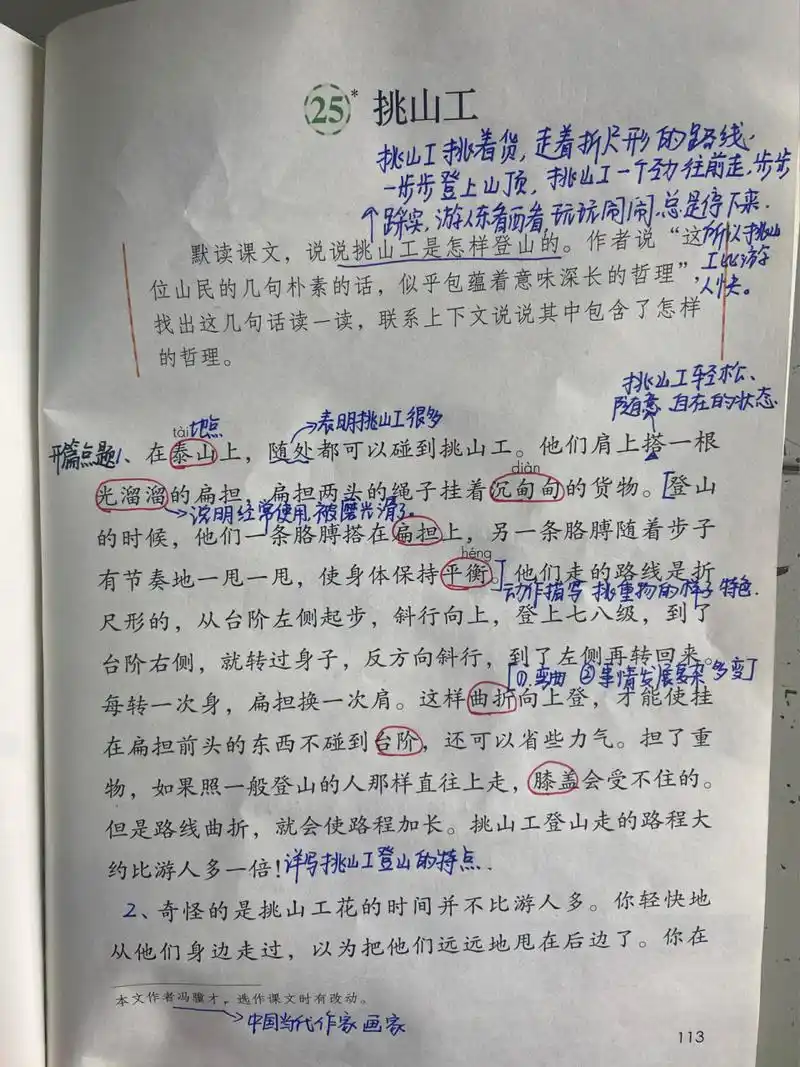 25* 挑山工
挑山工挑着货,走着折尺形的路线.
一步步登上山顶,挑山工一个劲往前走,步步
踩实,游人东看西看,玩玩闹闹,总是停下来.
所以挑山
工比游
人快。
默读课文,说说挑山工是怎样登山的。作者说“这
位山民的几句朴素的话,似乎包蕴着意味深长的哲理”,
找出这几句话读一读,联系上下文说说其中包含了怎样
的哲理。
挑山工轻松、
随意 自在的状态
地点
表明挑山工很多
tài
开篇点题1、在泰山上,随处都可以碰到挑山工。他们肩上搭一根
diàn
光溜溜的扁担,扁担两头的绳子挂着沉甸甸的货物。[登山
说明经常使用,被磨光滑了。
的时候,他们一条胳膊搭在扁担上,另一条胳膊随着步子
héng
有节奏地一甩一甩,使身体保持平衡。]他们走的路线是折
动作描写 挑重物的样子 特色.
尺形的,从台阶左侧起步,斜行向上,登上七八级,到了
台阶右侧,就转过身子,反方向斜行,到了左侧再转回来。
[①.弯曲 ②事情发展复杂 多变]
每转一次身,扁担换一次肩。这样曲折向上登,才能使挂
在扁担前头的东西不碰到台阶,还可以省些力气。担了重
物,如果照一般登山的人那样直往上走,膝盖会受不住的。
但是路线曲折,就会使路程加长。挑山工登山走的路程大
约比游人多一倍!详写挑山工登山的特点.
2、奇怪的是挑山工花的时间并不比游人多。你轻快地
从他们身边走过,以为把他们远远地甩在后边了。你在
本文作者冯骥才,选作课文时有改动。
中国当代作家 画家
113